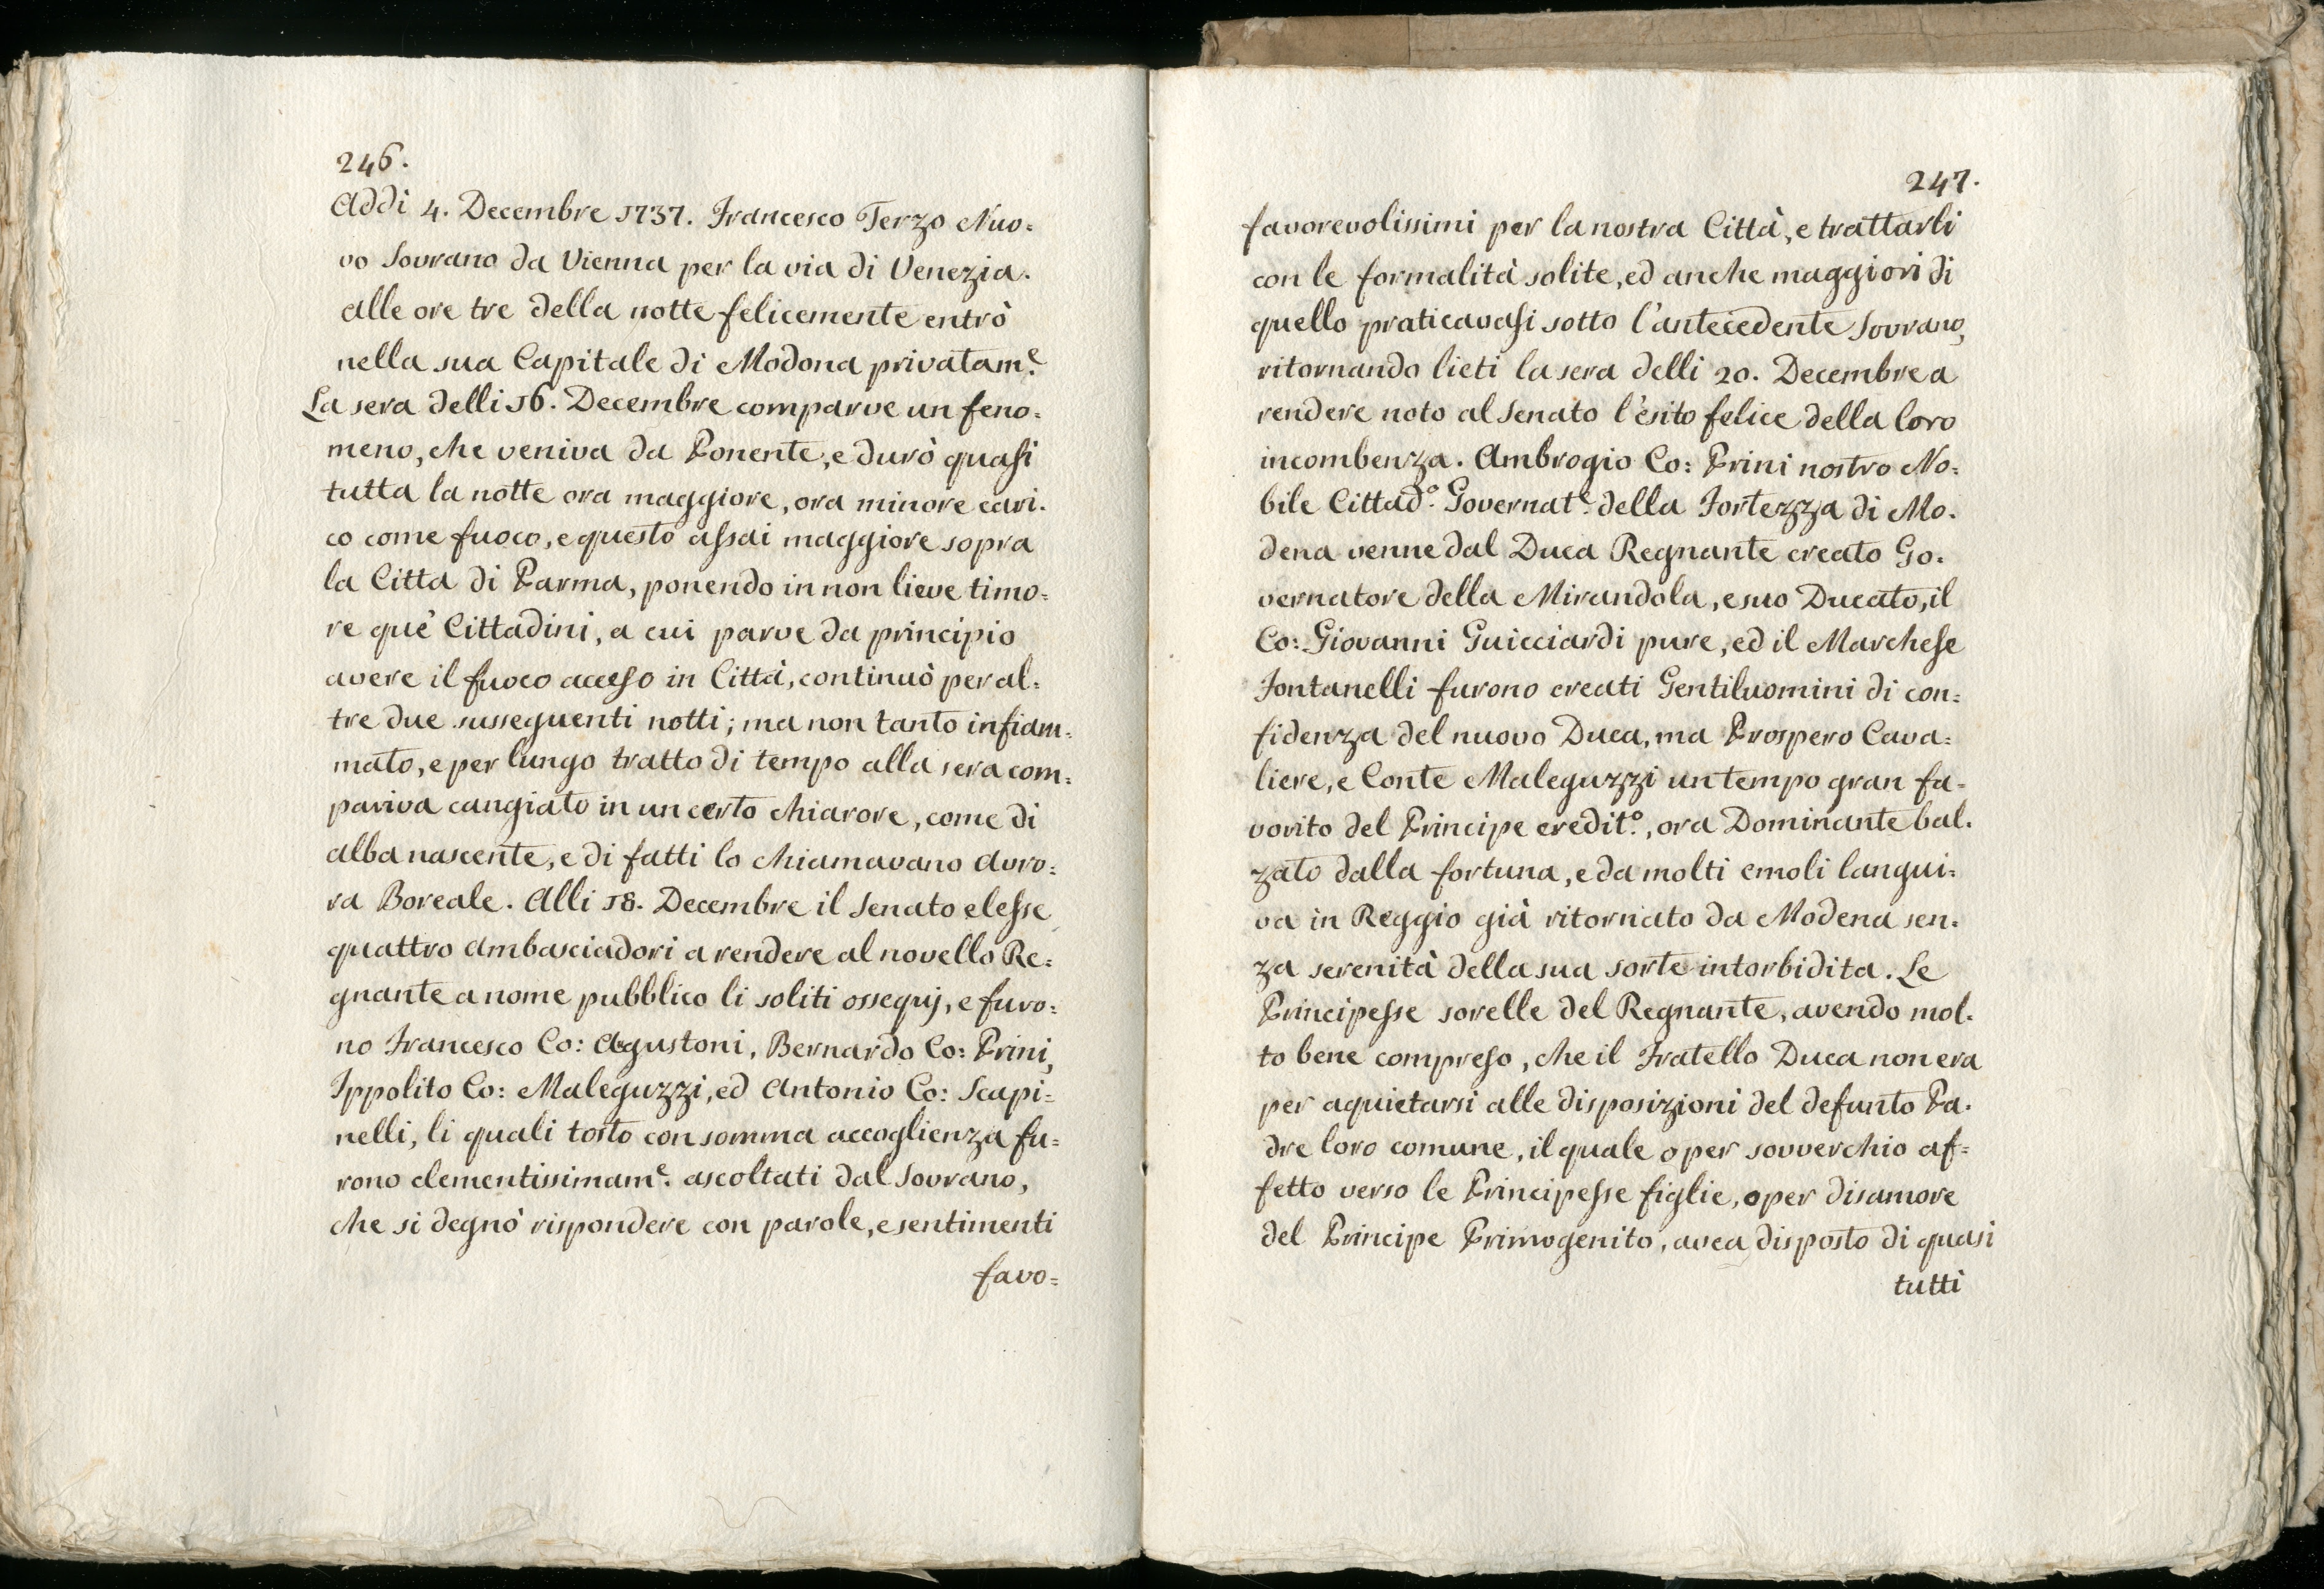 246.
Addi 4. Decembre 1737. Francesco Terzo Nuo=
vo Sovrano da Vienna per la via di Venezia.
alle ore tre della notte felicemente entrò
nella sua Capitale di Modona privatam.e
La sera delli 16. Decembre comparve un feno=
meno, che veniva da Ponente, e durò quasi
tutta la notte ora maggiore, ora minore cari=
co come fuoco, e questo assai maggiore sopra
la Citta di Parma, ponendo in non lieve timo=
re que' Cittadini, a cui parve da principio
avere il fuoco acceso in Città, continuò per al=
tre due susseguenti notti; ma non tanto infiam=
mato, e per lungo tratto di tempo alla sera com=
pariva cangiato in un certo chiarore, come di
alba nascente, e di fatti lo chiamavano Auro=
ra Boreale. Alli 18. Decembre il Senato elesse
quattro Ambasciadori a rendere al novello Re=
gnante a nome pubblico li soliti ossequj, e furo=
no Francesco Co: Agustoni, Bernardo Co: Prini,
Ippolito Co: Maleguzzi, ed Antonio Co: Scapi=
nelli, li quali tosto con somma accoglienza fu=
rono clementissimam.e ascoltati dal Sovrano,
che si degnò rispondere con parole, e sentimenti
favo=
247.
favorevolissimi per la nostra Città, e trattarli
con le formalità solite, ed anche maggiori di
quello praticavasi sotto l'antecedente Sovrano,
ritornando lieti la sera delli 20. Decembre a
rendere noto al Senato l'esito felice della loro
incombenza. Ambrogio Co: Prini nostro No=
bile Cittad.o Governat.e della Fortezza di Mo=
dena venne dal Duca Regnante creato Go=
vernatore della Mirandola, e suo Ducato, il
Co: Giovanni Guicciardi pure, ed il Marchese
Fontanelli furono creati Gentiluomini di con=
fidenza del nuovo Duca, ma Prospero Cava=
liere, e Conte Maleguzzi un tempo gran fa=
vorito del Principe eredit.o, ora Dominante bal=
zato dalla fortuna, e da molti emoli langui=
va in Reggio già ritornato da Modena sen=
za serenità della sua sorte intorbidita. Le
Principesse sorelle del Regnante, avendo mol=
to bene compreso, che il Fratello Duca non era
per aquietarsi alle disposizioni del defunto Pa=
dre loro comune, il quale o per sovverchio af=
fetto verso le Principesse figlie, o per disamore
del Principe Primogenito, avea disposto di quasi
tutti